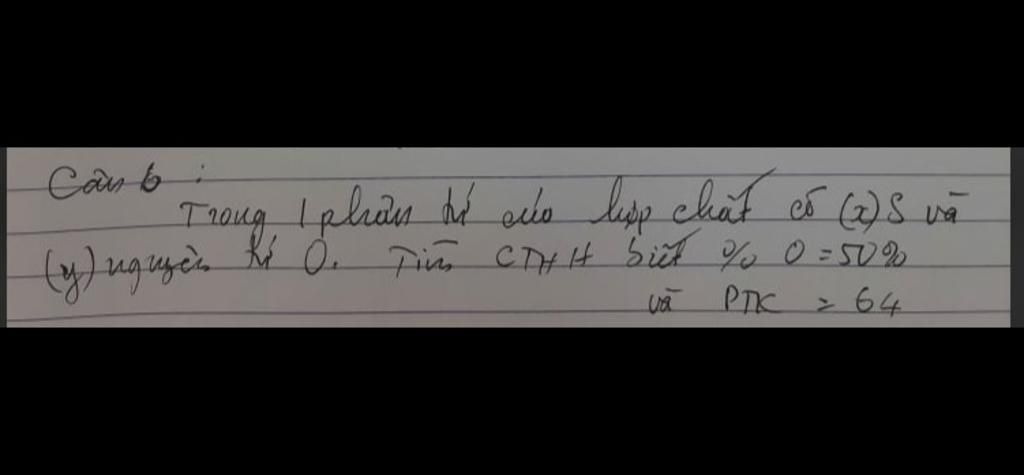 Câu 6 :
Trong 1 phân tử của hợp chất có (x) S và
(y) nguyên tử O. Tìm CTHH biết % O = 50%
và PTK = 64